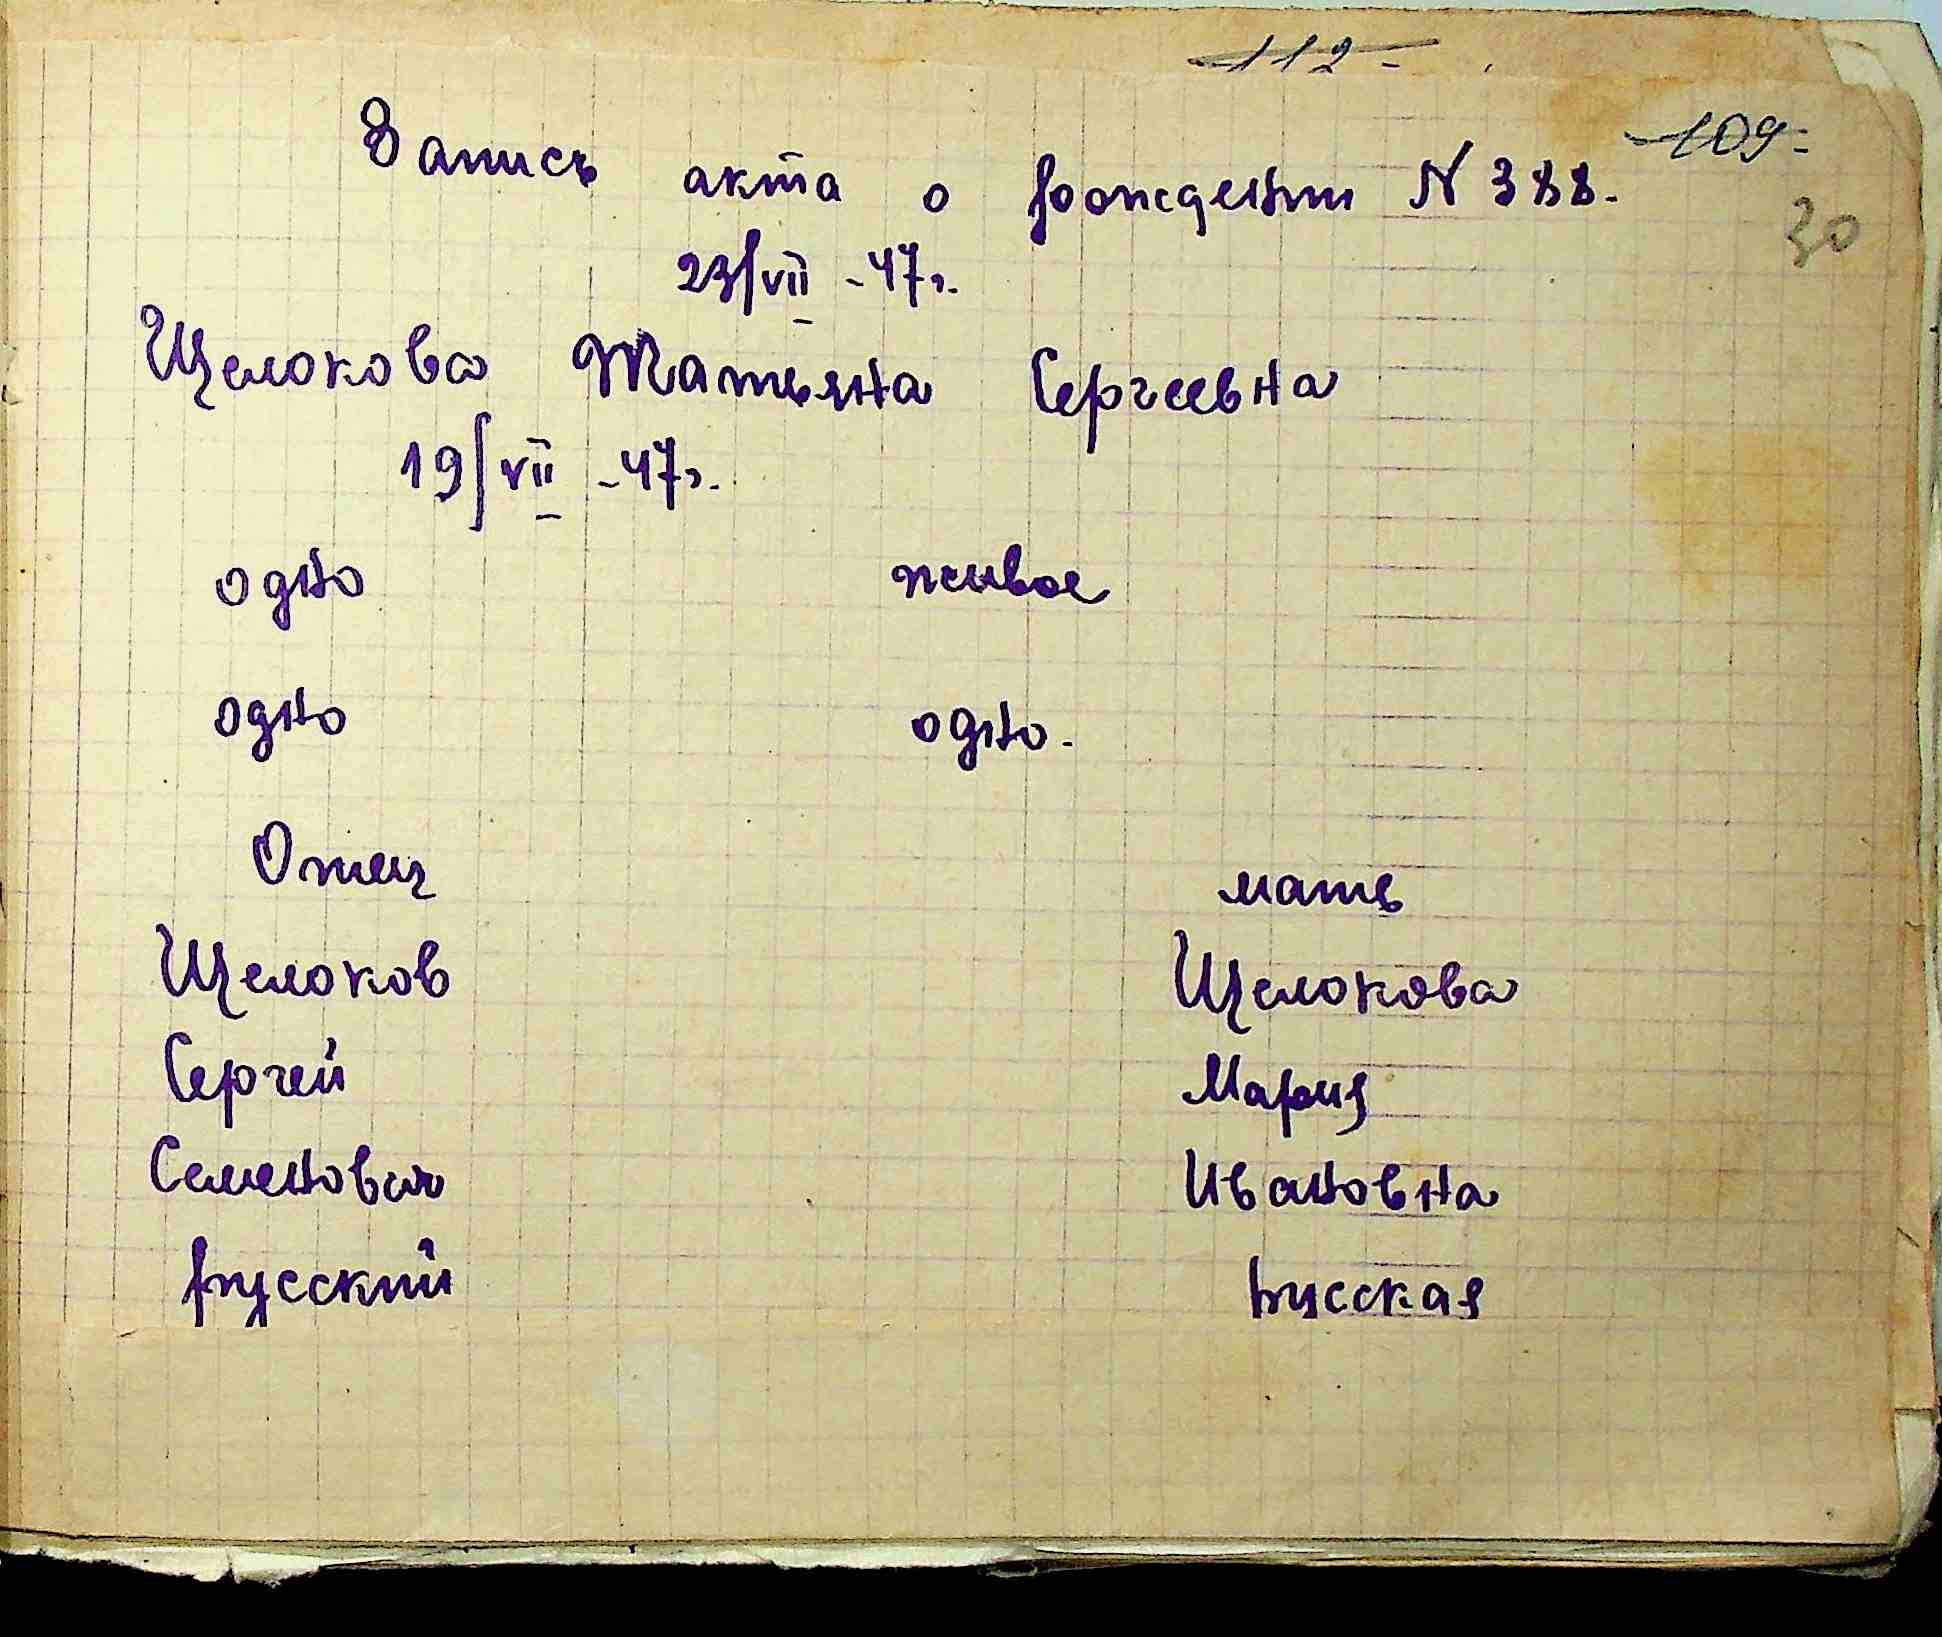 112-
109-
30
Запись акта о рождении N 388.
23/VII -47г.
Щелокова Татьяна Сергеевна
19/VII -47г.
одно живое
одно одно.
Отец мать
Щелоков Щелокова
Сергей Мария
Семенович Ивановна
русский русская